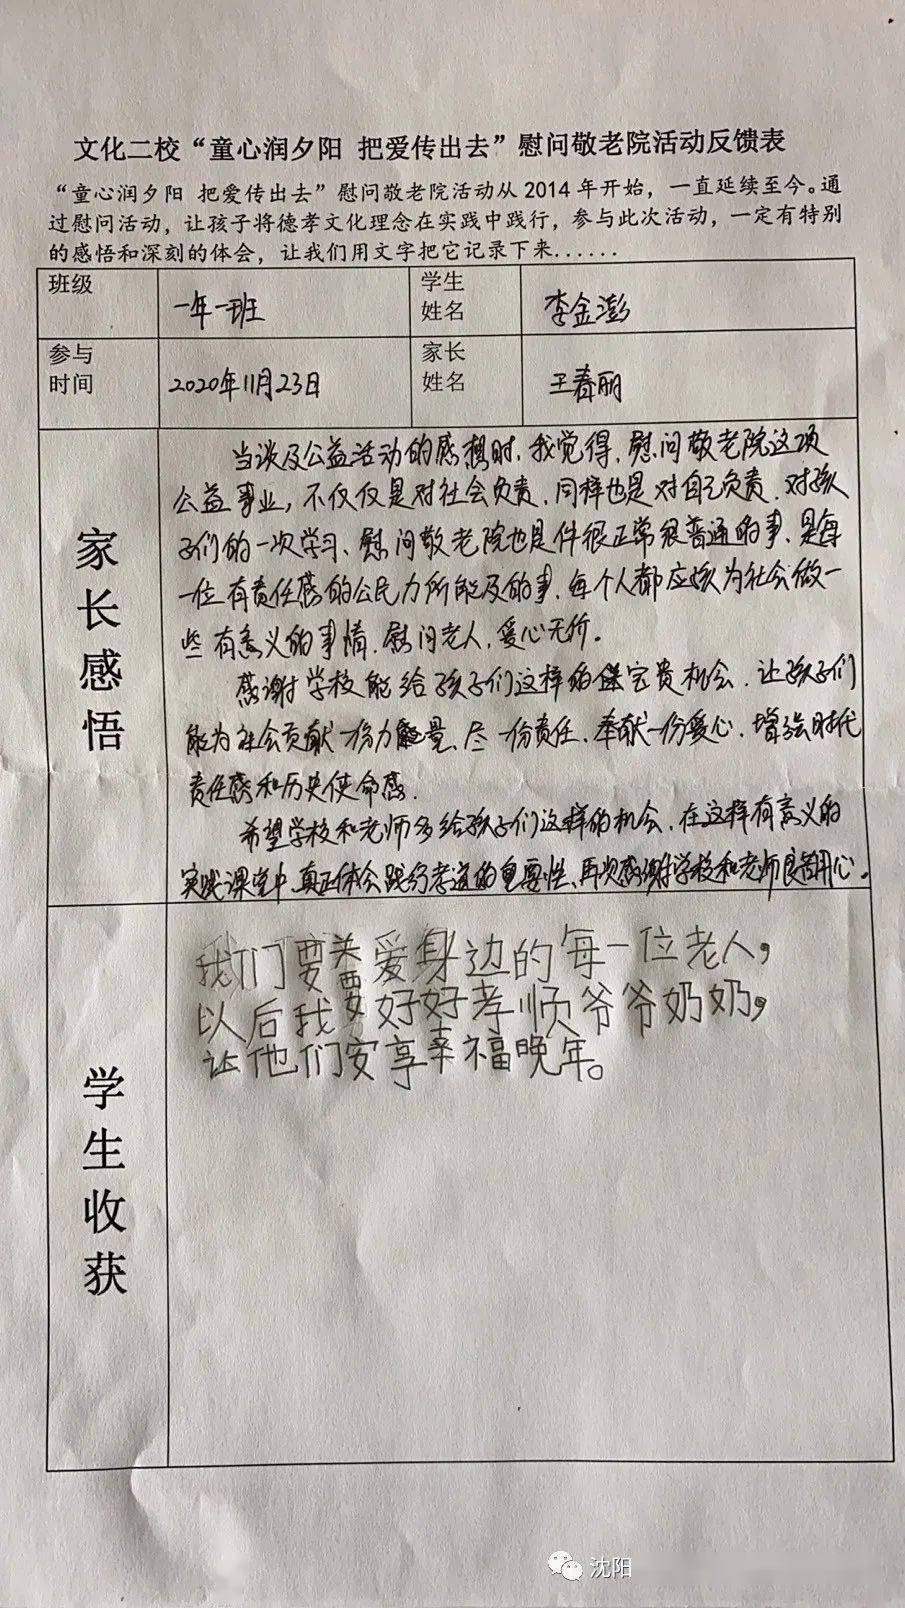 文化二校“童心润夕阳 把爱传出去”慰问敬老院活动反馈表
“童心润夕阳 把爱传出去”慰问敬老院活动从2014年开始，一直延续至今。通
过慰问活动，让孩子将德孝文化理念在实践中践行，参与此次活动，一定有特别
的感悟和深刻的体会，让我们用文字把它记录下来......
班级 一年一班 学生姓名 李金澎
参与时间 2020年11月23日 家长姓名 王春丽
家长感悟
当谈及公益活动的感想时，我觉得，慰问敬老院这项
公益事业，不仅仅是对社会负责，同样也是对自己负责，对孩
子们的一次学习、慰问敬老院也是件很正常很普通的事、是每
一位有责任感的公民力所能及的事，每个人都应该为社会做一
些有意义的事情，慰问老人，爱心无价。
感谢学校能给孩子们这样的宝贵机会，让孩子们
能为社会贡献一份力量、尽一份责任、奉献一份爱心，增强时代
责任感和历史使命感.
希望学校和老师多给孩子们这样的机会，在这样有意义的
实践课堂中，真正体会践行孝道的重要性、再次感谢学校和老师良苦用心。
学生收获
我们要关爱身边的每一位老人，
以后我要好好孝顺爷爷奶奶，
让他们安享幸福晚年。
沈阳